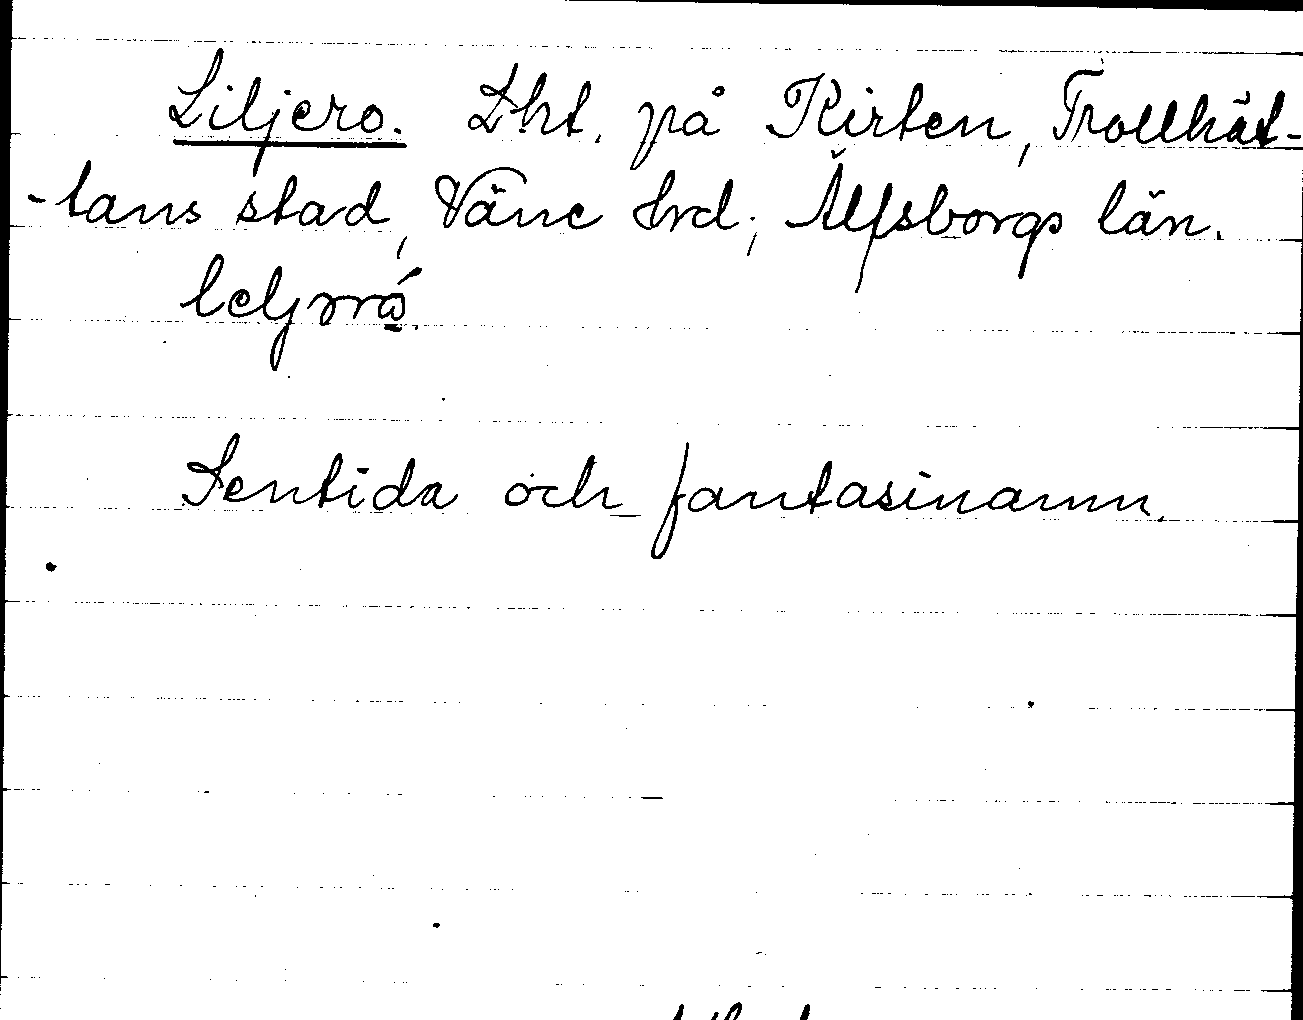 Liljero. Lht. på Kirten, Trollhät-
-tans stad, Väne hrd; Älfsborgs län.
Sentida och fantasinamn.